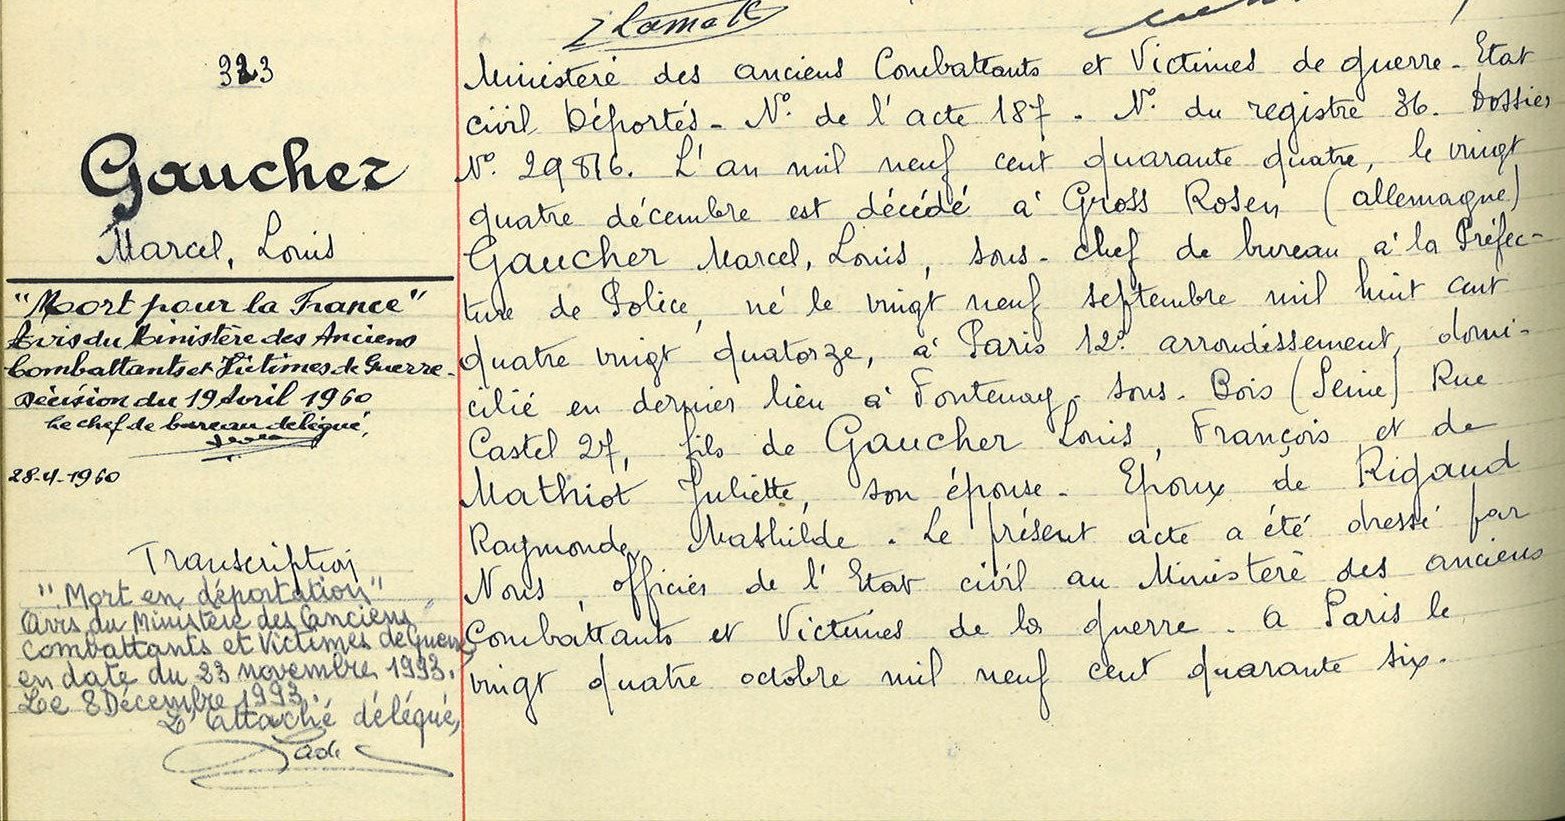 323
Gaucher
Marcel, Louis
"Mort pour la France"
Avis du Ministère des Anciens
Combattants et Victimes de Guerre -
Décision du 19 Avril 1960
Le chef de bureau délégué,
28-4-1960
Transcription
"Mort en déportation"
Avis du Ministère des Anciens
Combattants et Victimes de Guerre
en date du 23 novembre 1993.
Le 8 Décembre 1993.
L'attaché délégué,
Ministère des anciens Combattants et Victimes de guerre - Etat
civil Déportés - N° de l'acte 187 - N° du registre 36. Dossier
N° 29876. L'an mil neuf cent quarante quatre, le vingt
quatre décembre est décédé à Gross Rosen (allemagne)
Gaucher Marcel, Louis, sous-chef de bureau à la Préfec-
ture de Police, né le vingt neuf septembre mil huit cent
quatre vingt quatorze, à Paris 12e arrondissement, domi-
cilié en dernier lieu à Fontenay-sous-Bois (Seine) Rue
Castel 27, fils de Gaucher Louis, François et de
Mathiot Juliette, son épouse - Epoux de Rigaud
Raymonde Mathilde - Le présent acte a été dressé par
Nous, officier de l'Etat civil au Ministère des anciens
Combattants et Victimes de la guerre - à Paris le
vingt quatre octobre mil neuf cent quarante six.